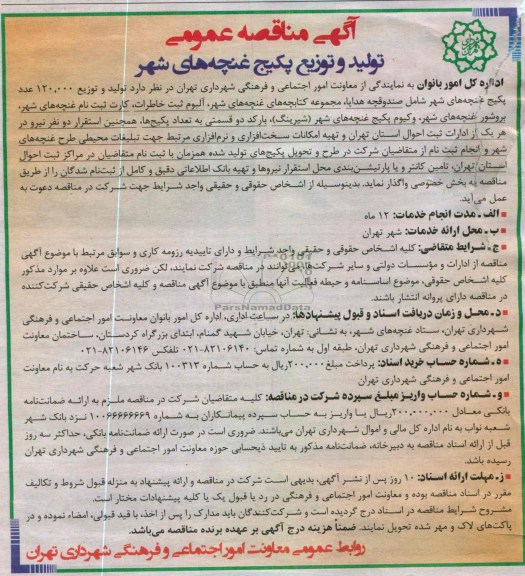 آگهی مناقصه عمومی
تولید و توزیع پکیج غنچه‌های شهر
اداره کل امور بانوان به نمایندگی از معاونت امور اجتماعی و فرهنگی شهرداری تهران در نظر دارد تولید و توزیع ۱۲۰,۰۰۰ عدد
پکیج غنچه‌های شهر شامل صندوقچه هدایا، مجموعه کتابچه‌های غنچه‌های شهر، آلبوم ثبت خاطرات، کارت ثبت نام غنچه‌های شهر،
بروشور غنچه‌های شهر، وکیوم پکیج غنچه‌های شهر (شیرینگ)، بارکد دو قسمتی به تعداد پکیج‌ها، همچنین استقرار دو نفر نیرو در
هر یک از ادارات ثبت احوال استان تهران و تهیه امکانات سخت‌افزاری و نرم‌افزاری مرتبط جهت تبلیغات محیطی طرح غنچه‌های
شهر و انجام ثبت نام از متقاضیان شرکت در طرح و تحویل پکیج‌های تولید شده همزمان با ثبت نام متقاضیان در مراکز ثبت احوال
استان تهران، تامین کانتر و یا پارتیشن‌بندی محل استقرار نیروها و تهیه بانک اطلاعاتی دقیق و کامل از ثبت‌نام شدگان را از طریق
مناقصه به بخش خصوصی واگذار نماید. بدینوسیله از اشخاص حقوقی و حقیقی واجد شرایط جهت شرکت در مناقصه دعوت به
عمل می‌آید.
■ الف ـ مدت انجام خدمات: ۱۲ ماه
■ ب ـ محل ارائه خدمات: شهر تهران
■ ج ـ شرایط متقاضی: کلیه اشخاص حقوقی و حقیقی واجد شرایط و دارای تاییدیه رزومه کاری و سوابق مرتبط با موضوع آگهی
مناقصه از ادارات و مؤسسات دولتی و سایر شرکت‌ها می‌توانند در مناقصه شرکت نمایند، لکن ضروری است علاوه بر موارد مذکور
کلیه اشخاص حقوقی، موضوع اساسنامه و حیطه فعالیت آنها منطبق با موضوع آگهی مناقصه و کلیه اشخاص حقیقی شرکت‌کننده
در مناقصه دارای پروانه انتشار باشند.
ParsNamadData
■ د ـ محل و زمان دریافت اسناد و قبول پیشنهادها: در ساعت اداری، اداره کل امور بانوان معاونت امور اجتماعی و فرهنگی
شهرداری تهران، ستاد غنچه‌های شهر، به نشانی: تهران، خیابان شهید گمنام، ابتدای بزرگراه کردستان، ساختمان معاونت
امور اجتماعی و فرهنگی تهران، طبقه اول به شماره تماس: ۸۲۱۰۶۱۴۰-۰۲۱ تلفکس ۸۲۱۰۶۱۴۶-۰۲۱
■ ه ـ شماره حساب خرید اسناد: پرداخت مبلغ ۲۰۰,۰۰۰ریال به حساب شماره ۱۰۰۳۱۳ بانک شهر شعبه حرکت به نام معاونت
امور اجتماعی و فرهنگی شهرداری تهران
■ و ـ شماره حساب واریز مبلغ سپرده شرکت در مناقصه: کلیه متقاضیان شرکت در مناقصه ملزم به ارائه ضمانت‌نامه
بانکی معادل ۲۰۰,۰۰۰,۰۰۰ریال یا واریز به حساب سپرده پیمانکاران به شماره ۱۰۰۶۶۶۶۶۶۹ نزد بانک شهر
شعبه نواب به نام اداره کل مالی و اموال شهرداری تهران می‌باشند. ضروری است در صورت ارائه ضمانت‌نامه بانکی، حداکثر سه روز
قبل از ارائه اسناد مناقصه به دبیرخانه، ضمانت‌نامه مذکور به تایید ذیحسابی حوزه معاونت امور اجتماعی و فرهنگی شهرداری تهران
رسیده باشد.
■ ز ـ مهلت ارائه اسناد: ۱۰ روز پس از نشر آگهی، بدیهی است شرکت در مناقصه و ارائه پیشنهاد به منزله قبول شروط و تکالیف
مقرر در اسناد مناقصه بوده و معاونت امور اجتماعی و فرهنگی در رد یا قبول یک یا کلیه پیشنهادات مختار است.
مشروح شرایط مناقصه در اسناد درج گردیده است و شرکت‌کنندگان باید مدارک را پس از اخذ، با قید قبولی، امضاء نموده و در
پاکت‌های لاک و مهر شده تحویل نمایند. ضمناً هزینه درج آگهی بر عهده برنده مناقصه می‌باشد.
روابط عمومی معاونت امور اجتماعی و فرهنگی شهرداری تهران